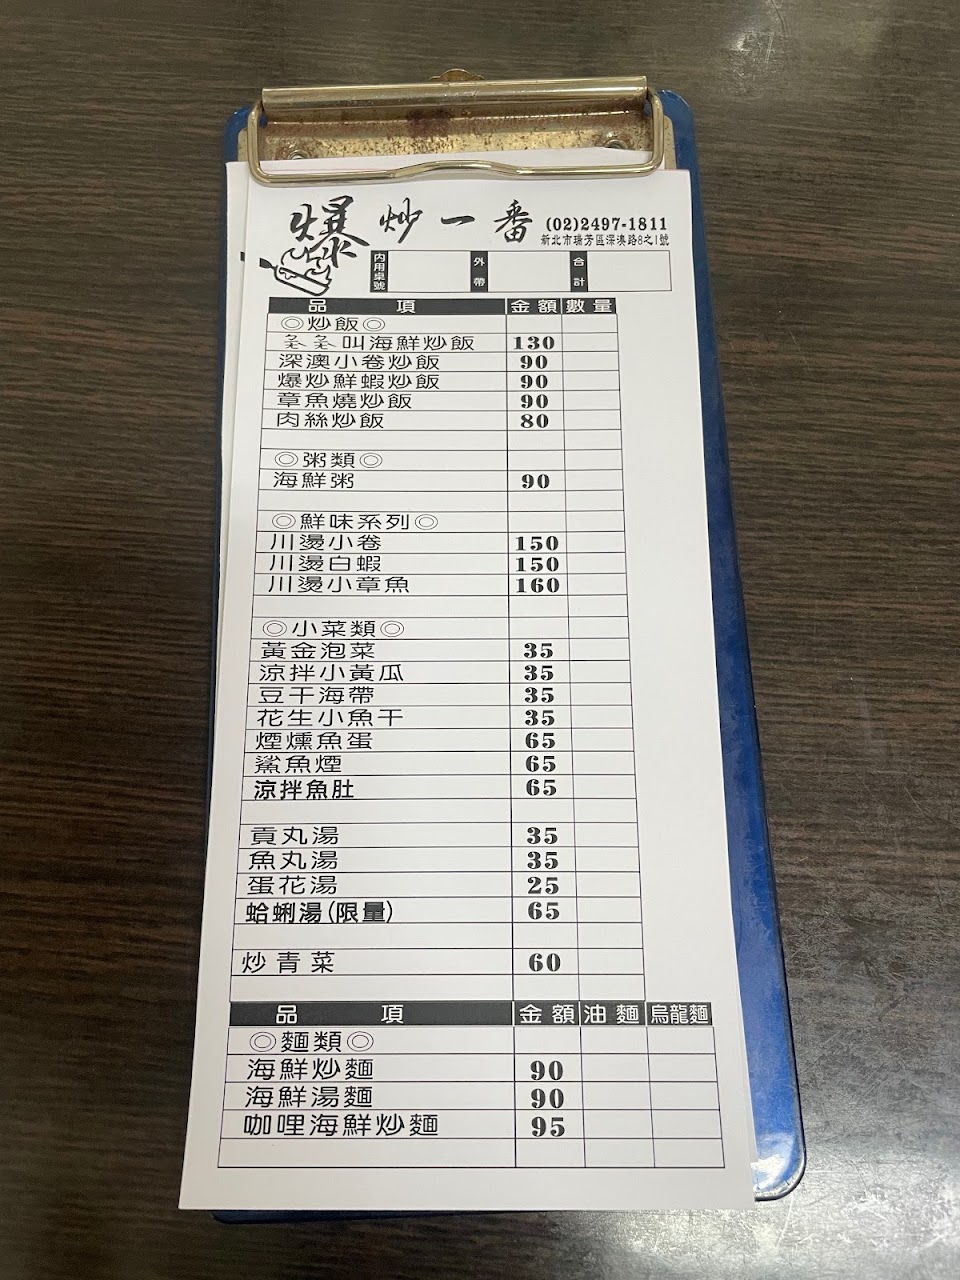 爆炒一番 (02)2497-1811
新北市瑞芳區深澳路8之1號
內用桌號 外帶 合計
品項 金額 數量
◎炒飯◎
ㄤㄤ叫海鮮炒飯 130
深澳小卷炒飯 90
爆炒鮮蝦炒飯 90
章魚燒炒飯 90
肉絲炒飯 80
◎粥類◎
海鮮粥 90
◎鮮味系列◎
川燙小卷 150
川燙白蝦 150
川燙小章魚 160
◎小菜類◎
黃金泡菜 35
涼拌小黃瓜 35
豆干海帶 35
花生小魚干 35
煙燻魚蛋 65
鯊魚煙 65
涼拌魚肚 65
貢丸湯 35
魚丸湯 35
蛋花湯 25
蛤蜊湯(限量) 65
炒青菜 60
品項 金額 油麵 烏龍麵
◎麵類◎
海鮮炒麵 90
海鮮湯麵 90
咖哩海鮮炒麵 95